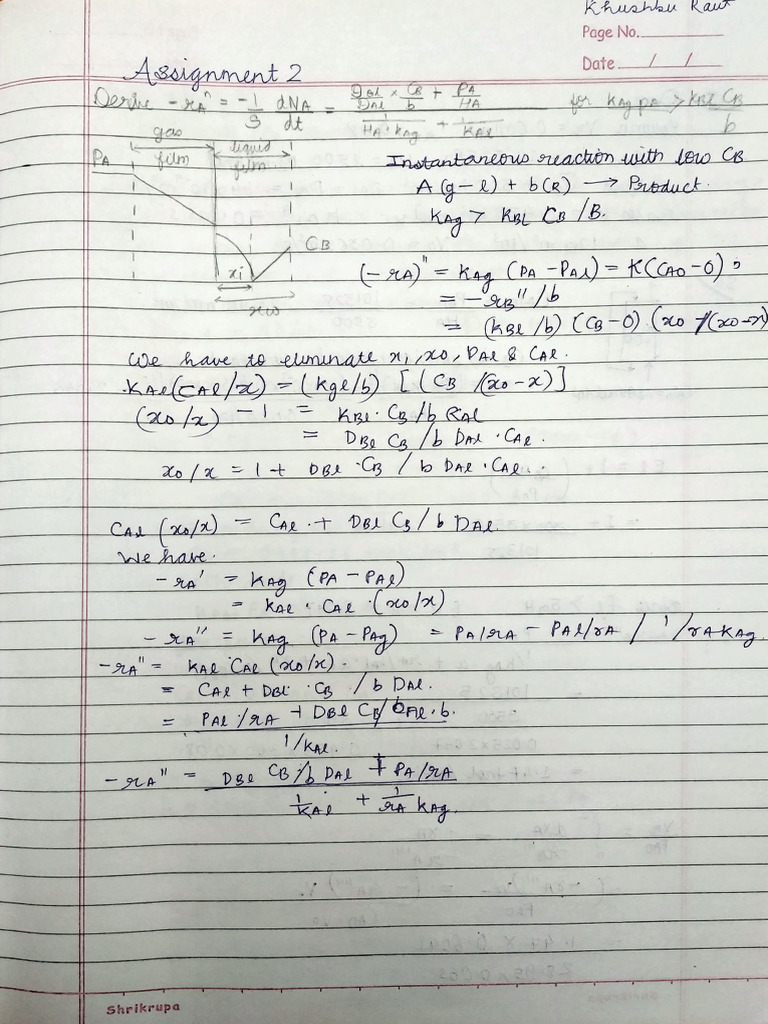 Khushbu Raut
Page No.
Date / /
Assignment 2
Derive -rA" = -1/S dNA/dt = (DBl/DAl × CB/b + PA/HA) / (1/(HA·kAg) + 1/kAl) for kAg pA > kBl CB/b
gas film liquid film
PA
Instantaneous reaction with low CB
A (g-l) + b(R) → Product.
KAg > KBl CB/B.
CB
xi
x0
(-rA)" = KAg (PA - PAl) = K(CA0-0)
= -rB"/b
= (KBl/b) (CB-0) (x0/(x0-x)
We have to eliminate x, x0, DAl & CAl.
KAl(CAl/x) = (Kgl/b) [(CB/(x0-x)]
(x0/x) -1 = KBl·CB/b RAl
= DBl CB/b DAl·CAl.
x0/x = 1 + DBl·CB / b DAl·CAl.
CAl (x0/x) = CAl + DBl CB/b DAl.
We have.
-rA' = KAg (PA - PAl)
= KAl·CAl·(x0/x)
-rA" = KAg (PA - PAg) = PA/rA - PAl/rA / 1/rA KAg.
-rA" = KAl CAl (x0/x).
= CAl + DBl·CB /b DAl.
= PAl/rA + DBl CB/ DAl·b.
1/KAl.
-rA" = DBl CB/b DAl + PA/rA
1/KAl + 1/rA KAg.
Shrikrupa